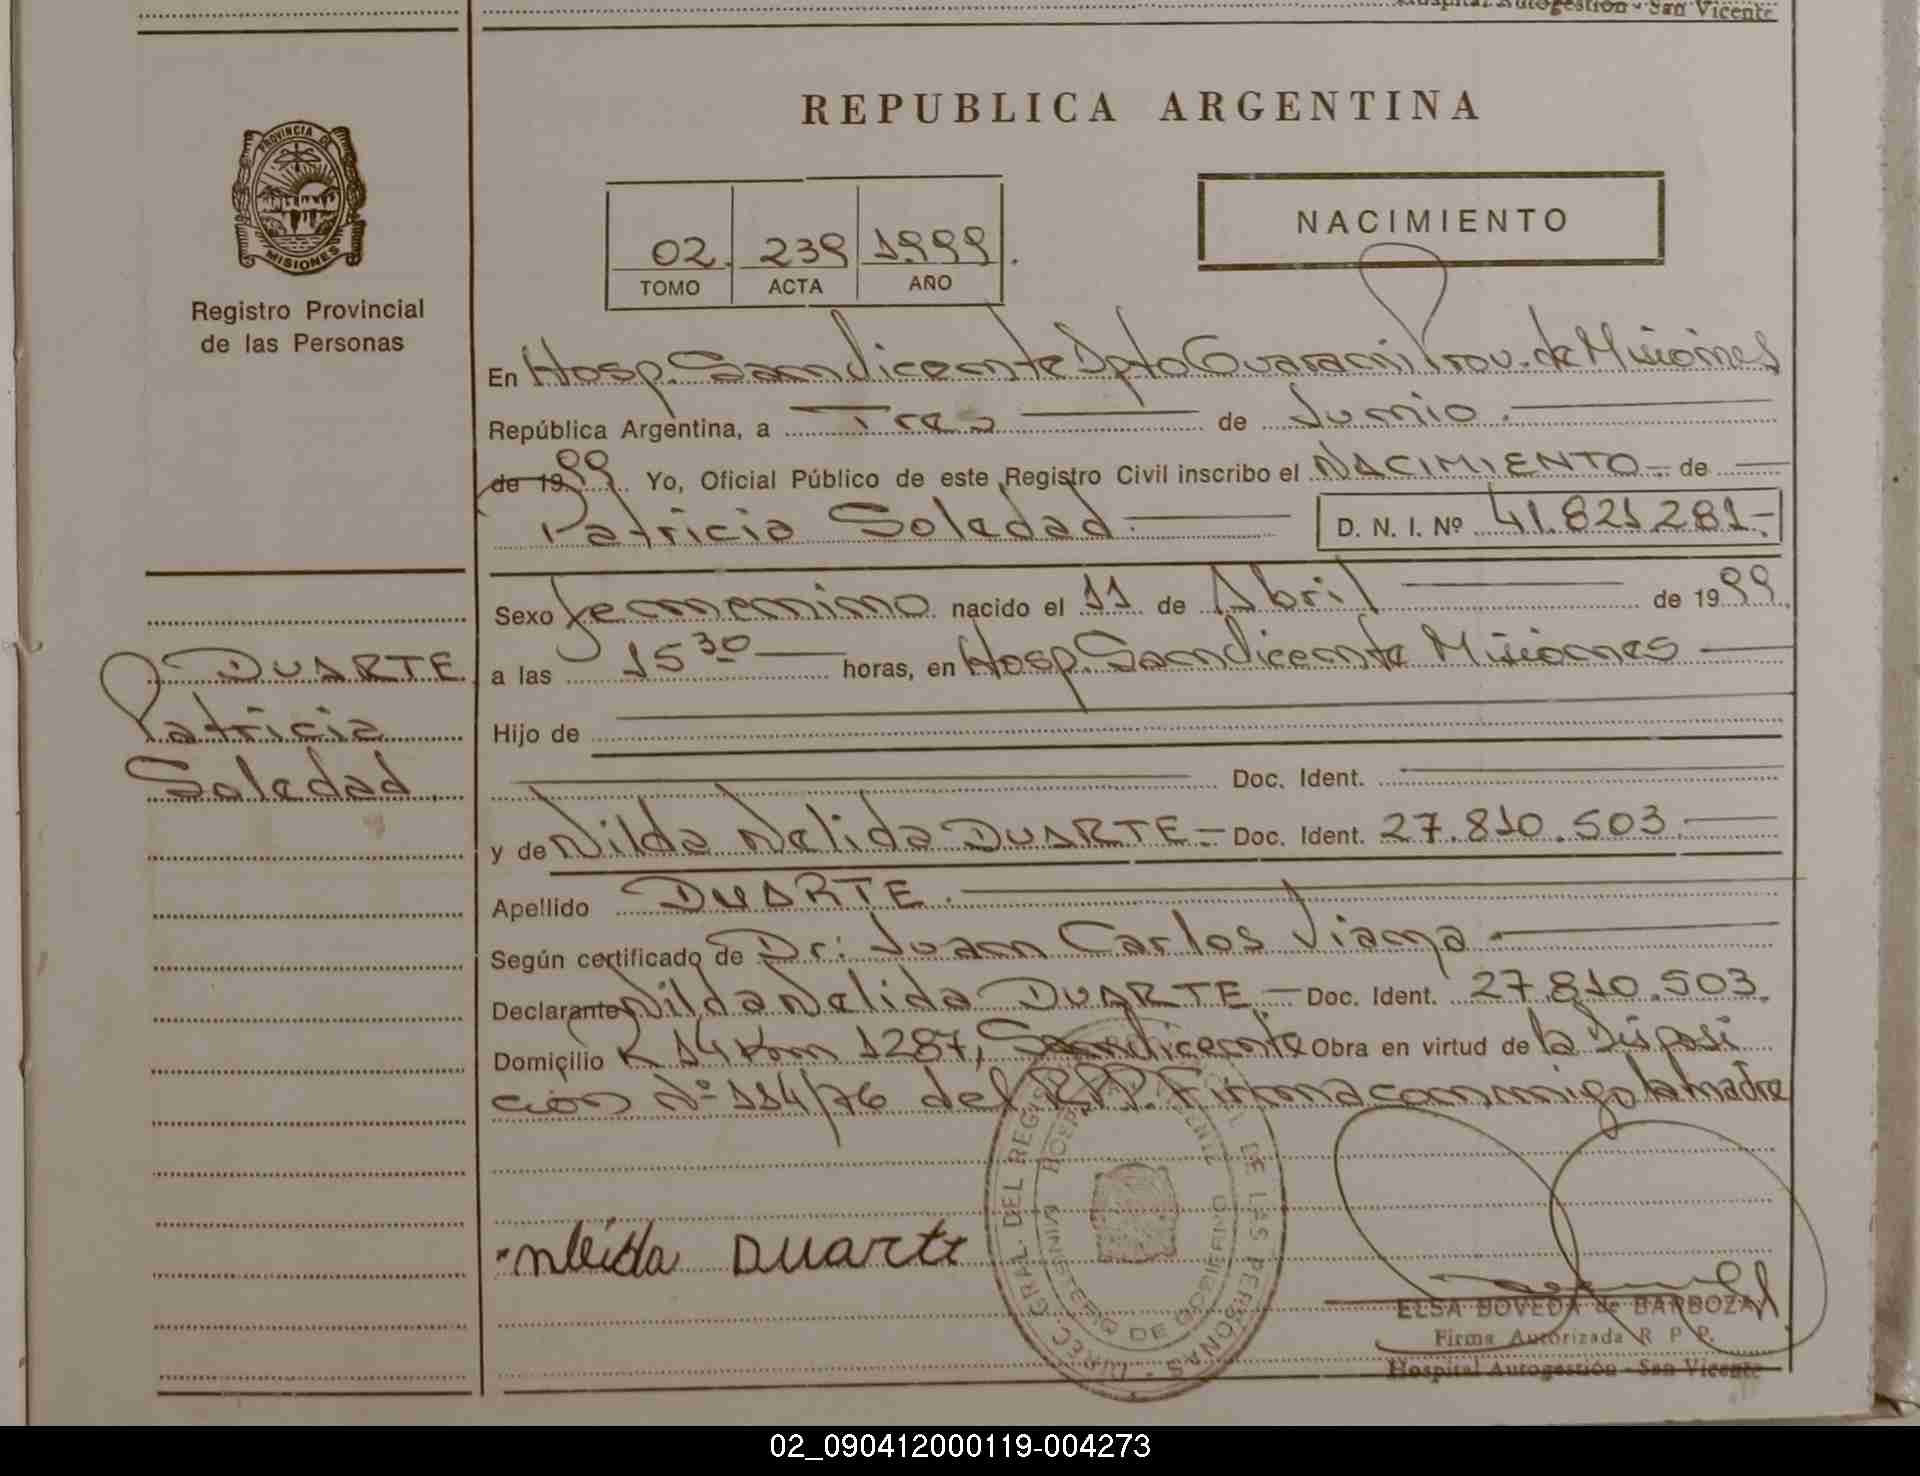 Hospital Autogestión - San Vicente
REPUBLICA ARGENTINA
PROVINCIA DE
MISIONES
Registro Provincial
de las Personas
02. 239 1999.
TOMO ACTA AÑO
NACIMIENTO
En Hosp. San Vicente Dpto Guarani Prov. de Misiones
República Argentina, a Tres de Junio.
de 1999 Yo, Oficial Público de este Registro Civil inscribo el NACIMIENTO - de
Patricia Soledad. D. N. I. Nº 41.821.281-
Sexo femenino nacido el 11 de Abril de 1999.
a las 15 30 horas, en Hosp. San Vicente Misiones
DUARTE
Patricia
Soledad.
Hijo de
Doc. Ident.
y de Nilda Nelida DUARTE - Doc. Ident. 27.810.503.
Apellido DUARTE.
Según certificado de Dr: Juan Carlos Viaña.
Declarante Nilda Nelida DUARTE - Doc. Ident. 27.810.503.
Domicilio R 14 Km 1287, San Vicente Obra en virtud de la Disposi
ción Nº 114/76 del RPP. Firma conmigo la madre
DIREC. GRAL. DEL REGIS DE LAS PERSONAS
MINISTERIO DE GOBIERNO
Duarte
ELSA BOVEDA de BARBOZA
Firma Autorizada R P P.
Hospital Autogestión - San Vicente
02_090412000119-004273